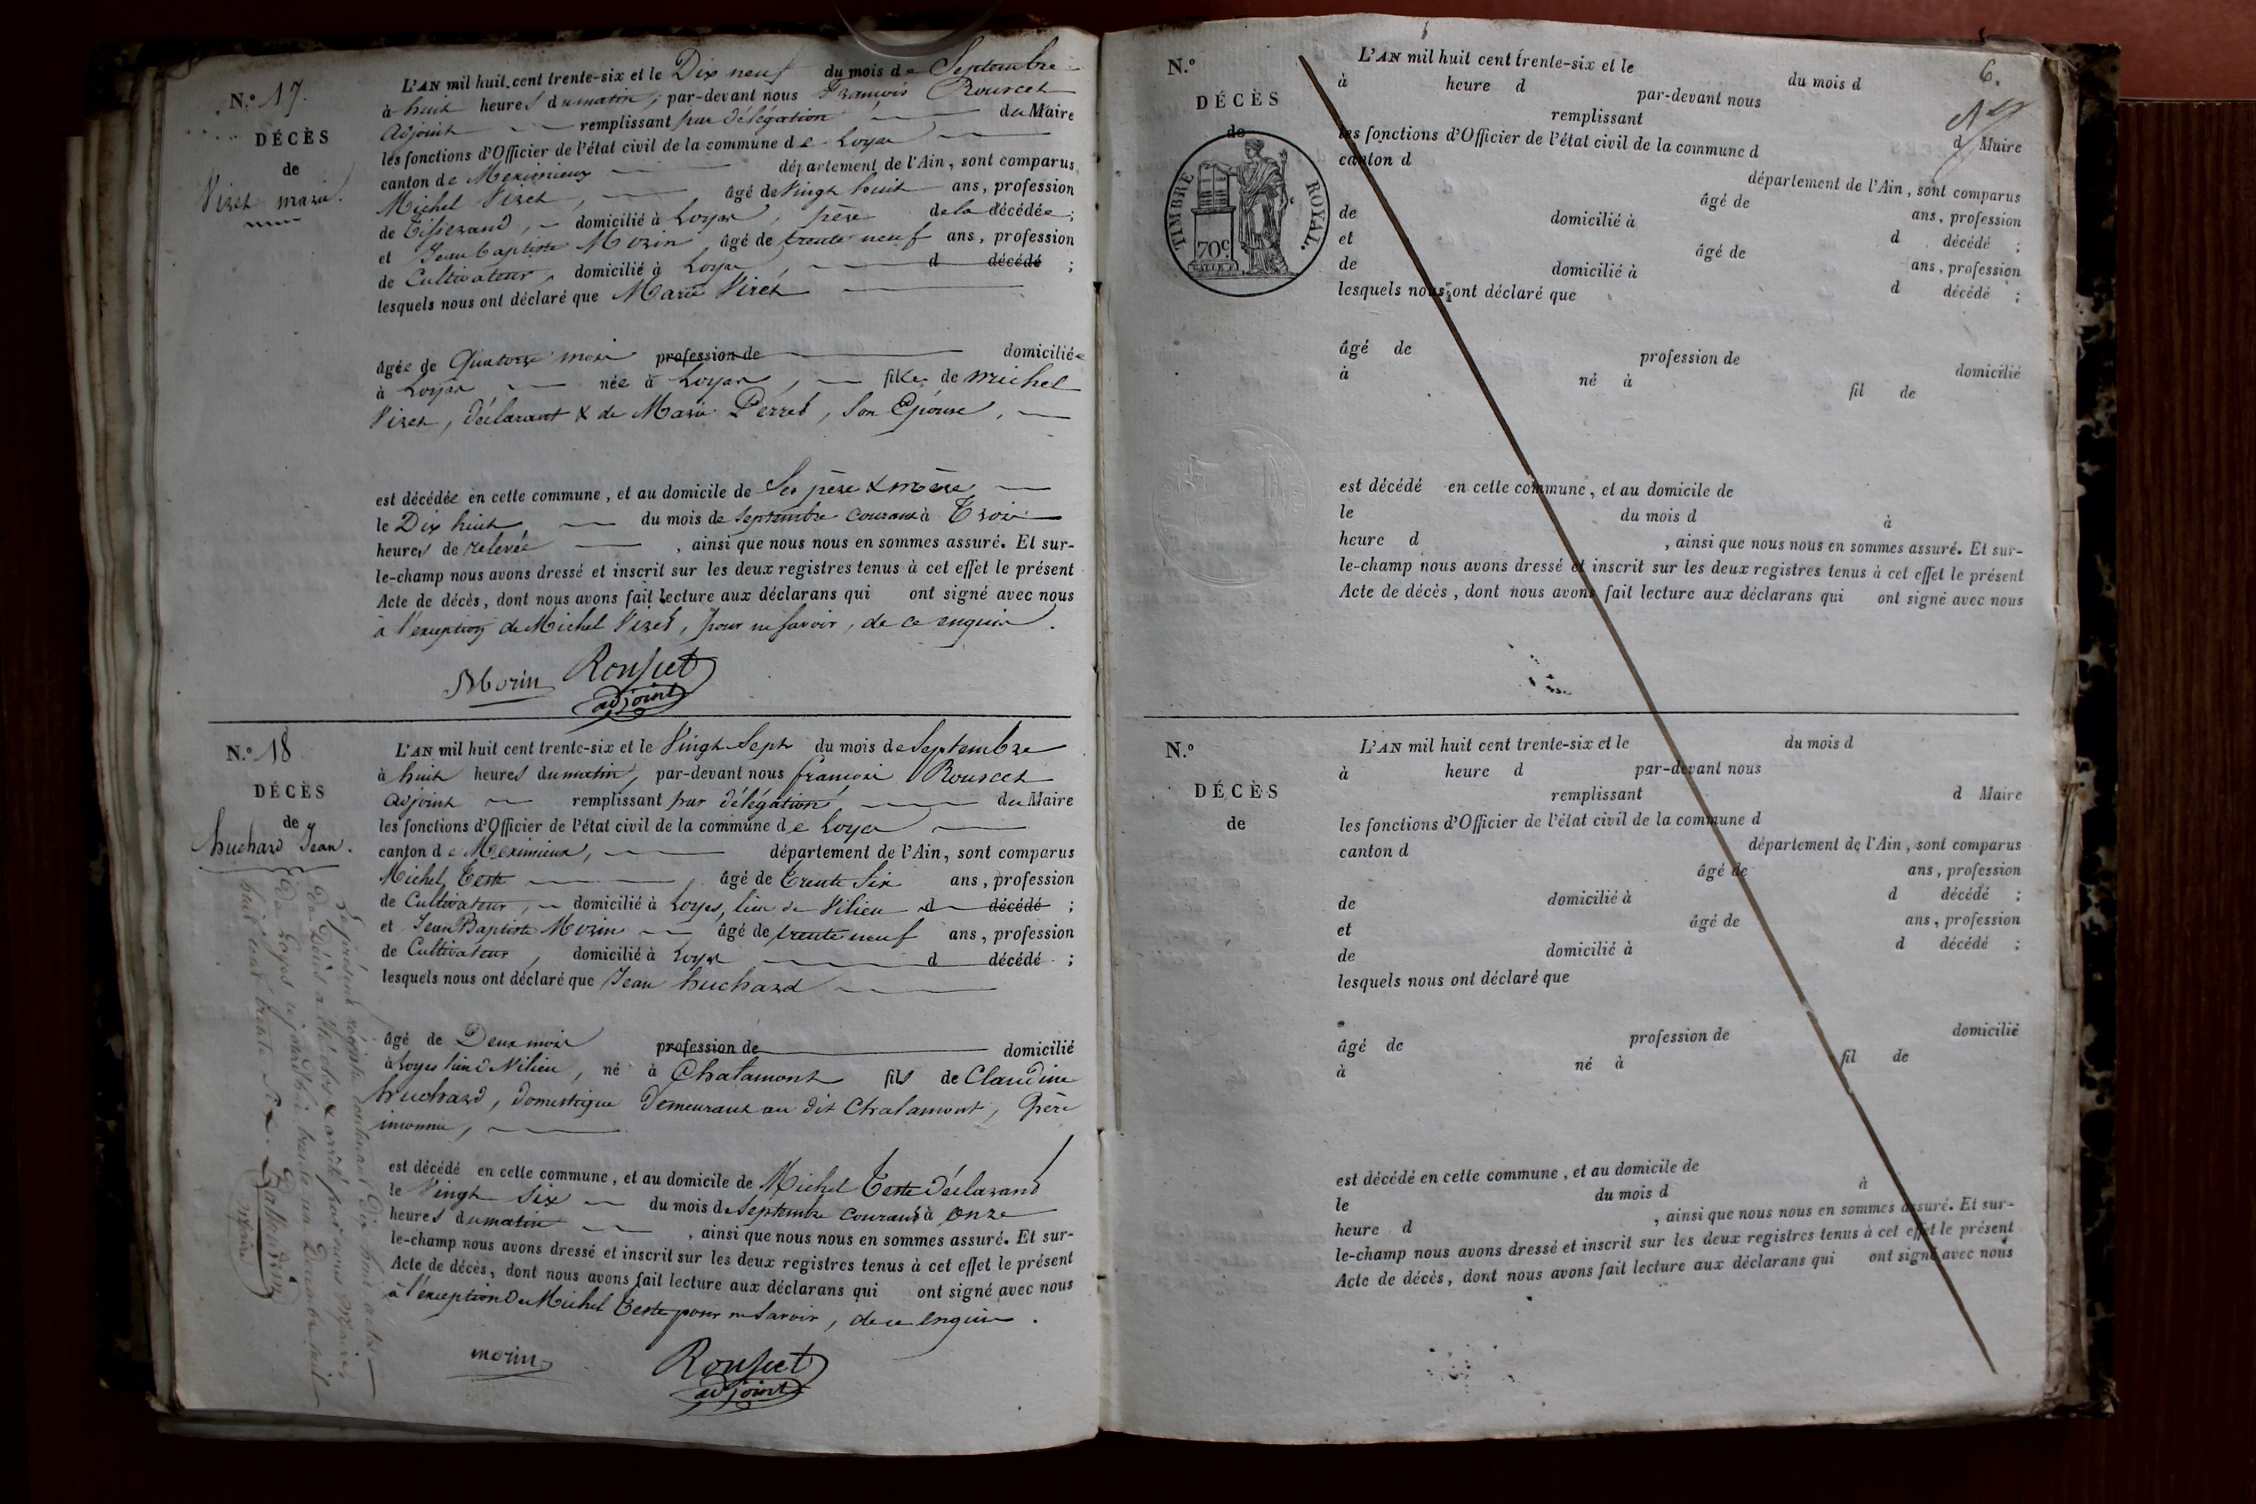 N.º 17.
DÉCÈS
de
Viret marie.
L'AN mil huit cent trente-six et le Dix neuf du mois de Septembre
à huit heures du matin, par-devant nous François Rousset
adjoint remplissant par délégation du Maire
les fonctions d'Officier de l'état civil de la commune de Loyes
canton de Meximieux département de l'Ain, sont comparus
Michel Viret, âgé de Vingt huit ans, profession
de Tisserand, domicilié à Loyes, père de la décédée;
et Jean Baptiste Morin, âgé de trente neuf ans, profession
de Cultivateur, domicilié à Loyes, d décédé ;
lesquels nous ont déclaré que Marie Viret
âgée de Quatorze mois profession de domiciliée
à Loyes née à Loyes, fille de Michel
Viret, déclarant & de Marie Perret, son Epouse,
est décédée en cette commune, et au domicile de Ses père & mère
le Dix huit du mois de Septembre courant à Trois
heures de relevée , ainsi que nous nous en sommes assuré. Et sur-
le-champ nous avons dressé et inscrit sur les deux registres tenus à cet effet le présent
Acte de décès, dont nous avons fait lecture aux déclarans qui ont signé avec nous
à l'exception de Michel Viret, pour ne savoir, de ce enquis.
Morin Rousset
adjoint
N.º 18
DÉCÈS
de
huchard Jean.
L'AN mil huit cent trente-six et le Vingt Sept du mois de Septembre
à huit heures du matin, par-devant nous françois Rousset
adjoint remplissant par délégation du Maire
les fonctions d'Officier de l'état civil de la commune de Loyes
canton de Meximieux, département de l'Ain, sont comparus
Michel Teste , âgé de Trente Six ans, profession
de Cultivateur, domicilié à Loyes, lieu de Vilieu d décédé ;
et Jean Baptiste Morin âgé de trente neuf ans, profession
de Cultivateur, domicilié à Loyes d décédé ;
lesquels nous ont déclaré que Jean huchard
âgé de Deux mois profession de domicilié
à Loyes lieu de Vilieu, né à Chalamont fils de Claudine
huchard, domestique demeurant au dit Chalamont, père
inconnu,
est décédé en cette commune, et au domicile de Michel Teste déclarant
le Vingt Six du mois de Septembre courant à onze
heures du matin , ainsi que nous nous en sommes assuré. Et sur-
le-champ nous avons dressé et inscrit sur les deux registres tenus à cet effet le présent
Acte de décès, dont nous avons fait lecture aux déclarans qui ont signé avec nous
à l'exception de Michel Teste pour ne savoir, de ce enquis.
morin Rousset
adjoint
Le présent registre contenant Dix huit actes
de Décès a été clos & arrêté par nous Maire
de Loyes ce jourd'hui trente un Décembre mil
huit cent trente Six.
maire
6.
N.º
DÉCÈS
de
TIMBRE ROYAL.
70c
L'AN mil huit cent trente-six et le du mois d
à heure d par-devant nous
remplissant d Maire
les fonctions d'Officier de l'état civil de la commune d
canton d département de l'Ain, sont comparus
âgé de ans, profession
de domicilié à d décédé ;
et âgé de ans, profession
de domicilié à d décédé ;
lesquels nous ont déclaré que
âgé de profession de domicilié
à né à fil de
est décédé en cette commune, et au domicile de
le du mois d à
heure d , ainsi que nous nous en sommes assuré. Et sur-
le-champ nous avons dressé et inscrit sur les deux registres tenus à cet effet le présent
Acte de décès, dont nous avons fait lecture aux déclarans qui ont signé avec nous
N.º
DÉCÈS
de
L'AN mil huit cent trente-six et le du mois d
à heure d par-devant nous
remplissant d Maire
les fonctions d'Officier de l'état civil de la commune d
canton d département de l'Ain, sont comparus
âgé de ans, profession
de domicilié à d décédé ;
et âgé de ans, profession
de domicilié à d décédé ;
lesquels nous ont déclaré que
âgé de profession de domicilié
à né à fil de
est décédé en cette commune, et au domicile de
le du mois d à
heure d , ainsi que nous nous en sommes assuré. Et sur-
le-champ nous avons dressé et inscrit sur les deux registres tenus à cet effet le présent
Acte de décès, dont nous avons fait lecture aux déclarans qui ont signé avec nous